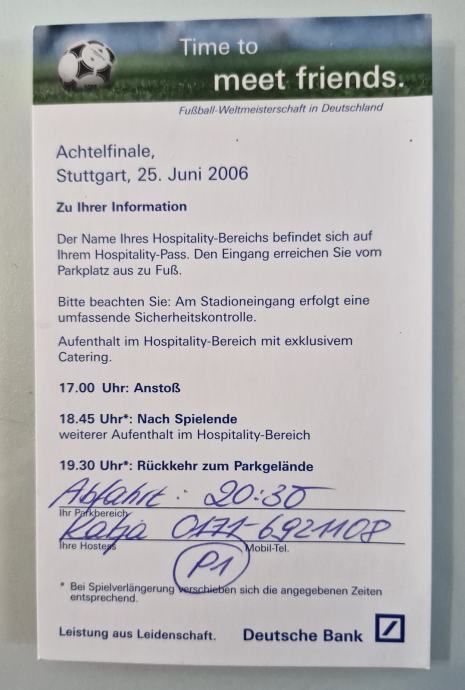 Time to
meet friends.
Fußball-Weltmeisterschaft in Deutschland
Achtelfinale,
Stuttgart, 25. Juni 2006
Zu Ihrer Information
Der Name Ihres Hospitality-Bereichs befindet sich auf
Ihrem Hospitality-Pass. Den Eingang erreichen Sie vom
Parkplatz aus zu Fuß.
Bitte beachten Sie: Am Stadioneingang erfolgt eine
umfassende Sicherheitskontrolle.
Aufenthalt im Hospitality-Bereich mit exklusivem
Catering.
17.00 Uhr: Anstoß
18.45 Uhr*: Nach Spielende
weiterer Aufenthalt im Hospitality-Bereich
19.30 Uhr*: Rückkehr zum Parkgelände
Abfahrt: 20:30
Ihr Parkbereich
Katja 0171-6921108
Ihre Hostess Mobil-Tel.
P1
* Bei Spielverlängerung verschieben sich die angegebenen Zeiten
entsprechend.
Leistung aus Leidenschaft. Deutsche Bank